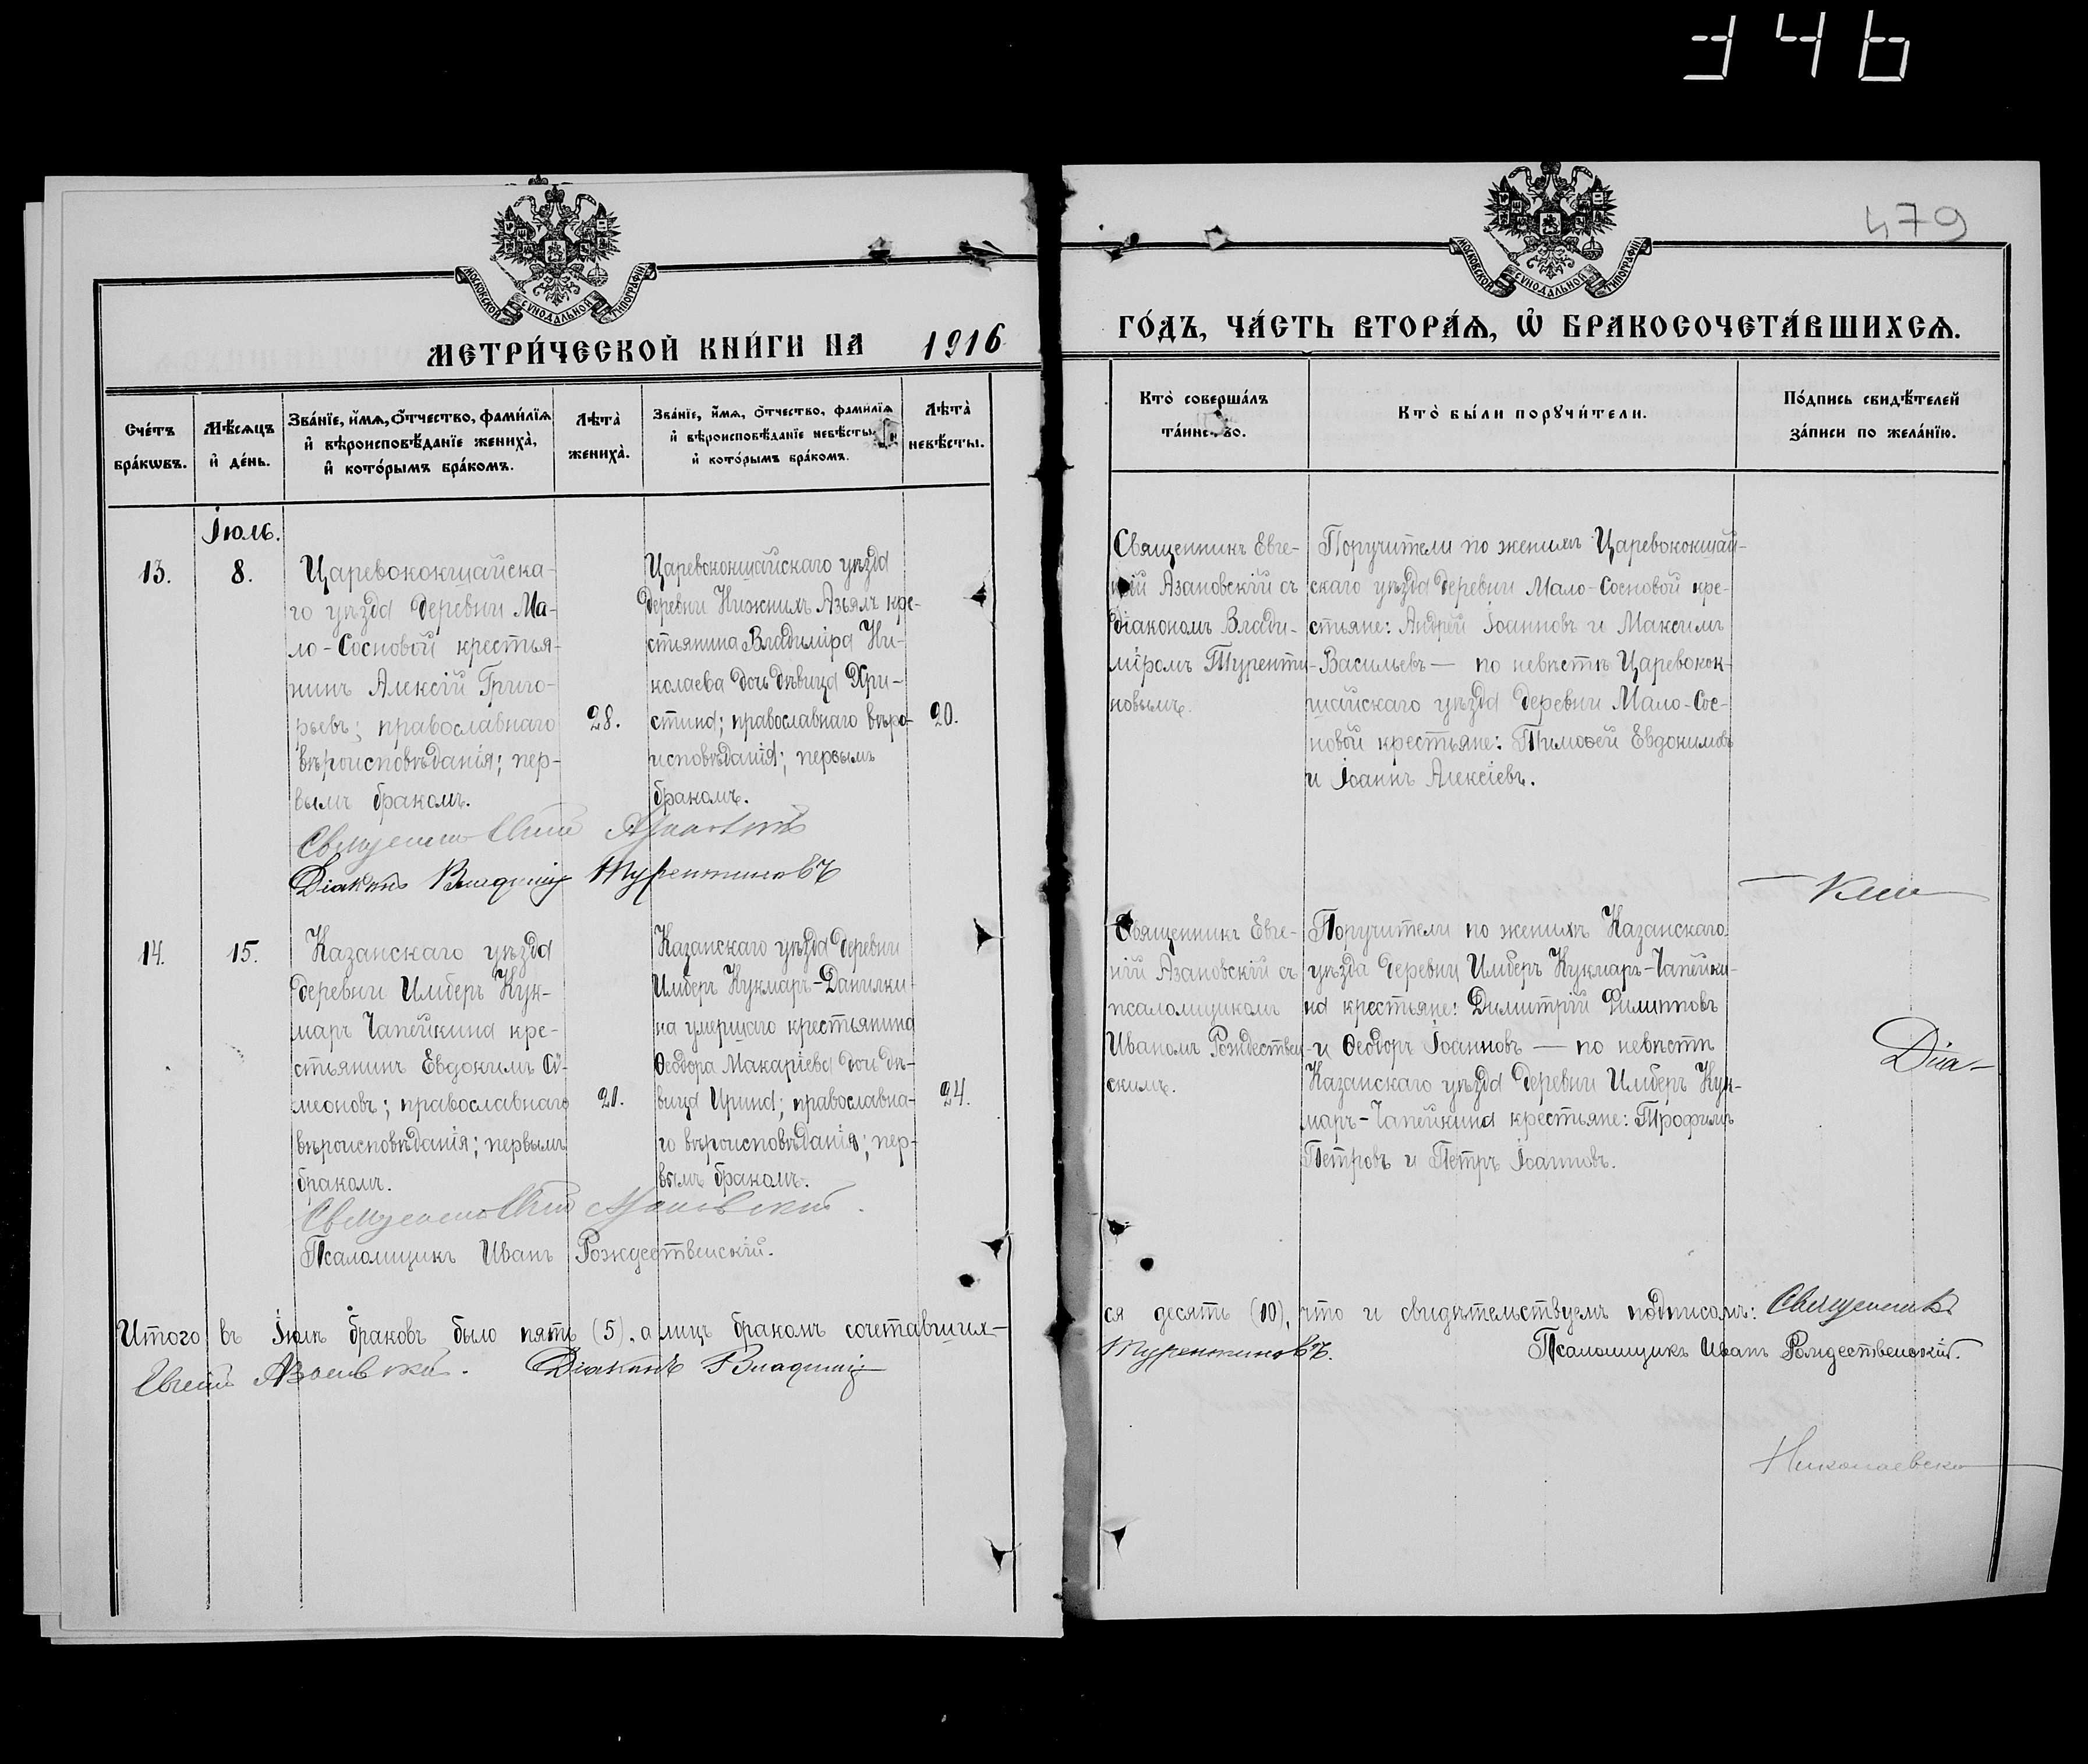 346
479
МОСКОВСКОЙ СУНОДАЛЬНОЙ ТИПОГРАФІИ
МОСКОВСКОЙ СУНОДАЛЬНОЙ ТИПОГРАФІИ
МЕТРИ́ЧЕСКОЙ КНИ́ГИ НА 1916
ГО́ДЪ, ЧА́СТЬ ВТОРА́Ѧ, Ѡ҆ БРАКОСОЧЕТА́ВШИХСѦ.
Сче́тъ
бра́кѡвъ.
Мѣ́сѧцъ
и҆ де́нь.
Зва́нїе, и҆́мѧ, ѻ҆́тчество, фами́лїѧ
и҆ вѣроисповѣ́данїе жениха̀,
и҆ кото́рымъ бра́комъ.
Лѣта̀
жениха̀.
Зва́нїе, и҆́мѧ, ѻ҆́тчество, фами́лїѧ
и҆ вѣроисповѣ́данїе невѣ́сты, и҆
и҆ кото́рымъ бра́комъ.
Лѣта̀
невѣ́сты.
Кто̀ соверша́лъ
та́инство.
Кто̀ бы́ли порꙋчи́тели.
По́дпись свидѣ́телей
за́писи по жела́нїю.
Іюль.
13.
8.
Царевококшайска-
го уѣзда деревни Ма-
ло-Сосновой крестья-
нинъ Алексій Григо-
рьевъ; православнаго
вѣроисповѣданія; пер-
вымъ бракомъ.
28.
Царевококшайскаго уѣзда
деревни Нижнихъ Азьялъ кре-
стьянина Владиміра Ни-
колаева дочь дѣвица Хри-
стина; православнаго вѣро-
исповѣданія; первымъ
бракомъ.
20.
Священникъ Евге-
ній Азановскій съ
діакономъ Влади-
міромъ Туренти-
новымъ.
Поручители по женихѣ Царевококшай-
скаго уѣзда деревни Мало-Сосновой кре-
стьяне: Андрей Іоанновъ и Максимъ
Васильевъ — по невѣстѣ Царевокок-
шайскаго уѣзда деревни Мало-Сос-
новой крестьяне: Тимоѳей Евдокимовъ
и Іоаннъ Алексіевъ.
Священникъ Евгеній Азановскій
Діаконъ Владиміръ Турентиновъ
14.
15.
Казанскаго уѣзда
деревни Имберъ Кук-
маръ Чапейкина кре-
стьянинъ Евдокимъ Си-
меоновъ; православнаго
вѣроисповѣданія; первымъ
бракомъ.
21.
Казанскаго уѣзда деревни
Имберъ Кукмаръ-Данилки-
на умершаго крестьянина
Ѳеодора Макаріева дочь дѣ-
вица Ирина; православна-
го вѣроисповѣданія; пер-
вымъ бракомъ.
24.
Священникъ Евге-
ній Азановскій съ
псаломщикомъ
Иваномъ Рождествен-
скимъ.
Поручители по женихѣ Казанскаго
уѣзда деревни Имберъ Кукмаръ-Чапейки-
на крестьяне: Димитрій Филипповъ
и Ѳеодоръ Іоанновъ — по невѣстѣ
Казанскаго уѣзда деревни Имберъ Кук-
маръ-Чапейкина крестьяне: Трофимъ
Петровъ и Петръ Іоанновъ.
Діа-
Священникъ Евгеній Азановскій.
Псаломщикъ Иванъ Рождественскій.
Итого въ Іюлѣ браковъ было пять (5), а лицъ бракомъ сочетавших-
ся десять (10), что и свидѣтельствуемъ подписомъ: Священникъ
Евгеній Азановскій. Діаконъ Владиміръ
Турентиновъ. Псаломщикъ Иванъ Рождественскій.
Николаевско